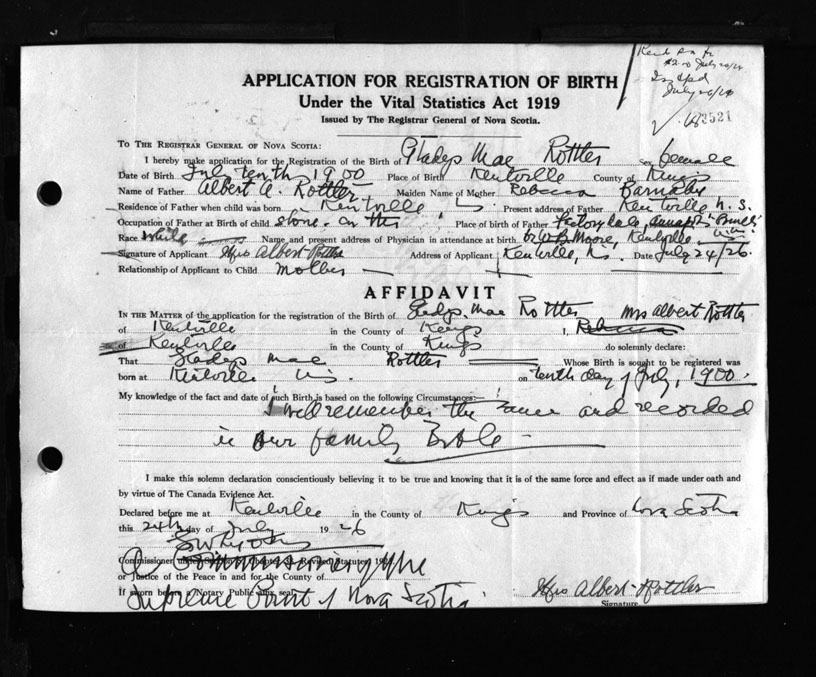 $2.00 July 26/26
July 26/26
3521
APPLICATION FOR REGISTRATION OF BIRTH
Under the Vital Statistics Act 1919
Issued by The Registrar General of Nova Scotia.
TO THE REGISTRAR GENERAL OF NOVA SCOTIA:
I hereby make application for the Registration of the Birth of Gladys Mae Rottler female
Date of Birth July tenth 1900 Place of Birth Kentville County of Kings
Name of Father Albert A. Rottler Maiden Name of Mother Rebecca Barnaby
Residence of Father when child was born Kentville Present address of Father Kentville N. S.
Occupation of Father at Birth of child stone Place of Birth of Father Factorydale, Annapolis
Race white Name and present address of Physician in attendance at birth Dr W B Moore, Kentville
Signature of Applicant Mrs Albert Rottler Address of Applicant Kentville, N.S. Date July 24/26.
Relationship of Applicant to Child Mother
AFFIDAVIT
IN THE MATTER of the application for the registration of the Birth of Gladys Mae Rottler Mrs Albert Rottler
of Kentville in the County of Kings I, Rebecca
of Kentville in the County of Kings do solemnly declare:
That Gladys Mae Rottler Whose Birth is sought to be registered was
born at Kentville N.S. on tenth day of July, 1900.
My knowledge of the fact and date of such Birth is based on the following Circumstances:
I well remember the same and recorded
in our family Bible
I make this solemn declaration conscientiously believing it to be true and knowing that it is of the same force and effect as if made under oath and
by virtue of The Canada Evidence Act.
Declared before me at Kentville in the County of Kings and Province of Nova Scotia
this 24th day of July 1926
A Commissioner of the
Commissioner under Revised Statutes 19
or Justice of the Peace in and for the County of
Supreme Court of Nova Scotia
If sworn before a Notary Public affix seal
Mrs Albert Rottler
Signature